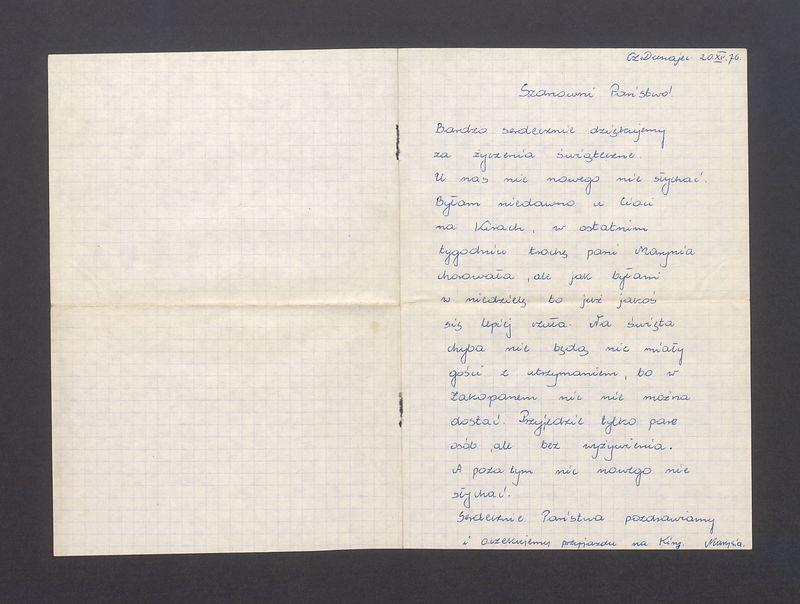 Cz. Dunajec 20.XII.76.
Szanowni Państwo!
Bardzo serdecznie dziękujemy
za życzenia świąteczne.
U nas nic nowego nie słychać.
Byłam niedawno u Cioci
na Kirach, w ostatnim
tygodniu trochę pani Marynia
chorowała, ale jak byłam
w niedzielę to już jakoś
się lepiej czuła. Na święta
chyba nie będą nic miały
gości z utrzymaniem, bo w
Zakopanem nic nie można
dostać. Przyjedzie tylko parę
osób, ale bez wyżywienia.
A poza tym nic nowego nie
słychać.
Serdecznie Państwa pozdrawiamy
i oczekujemy przyjazdu na Kiry. Marysia.